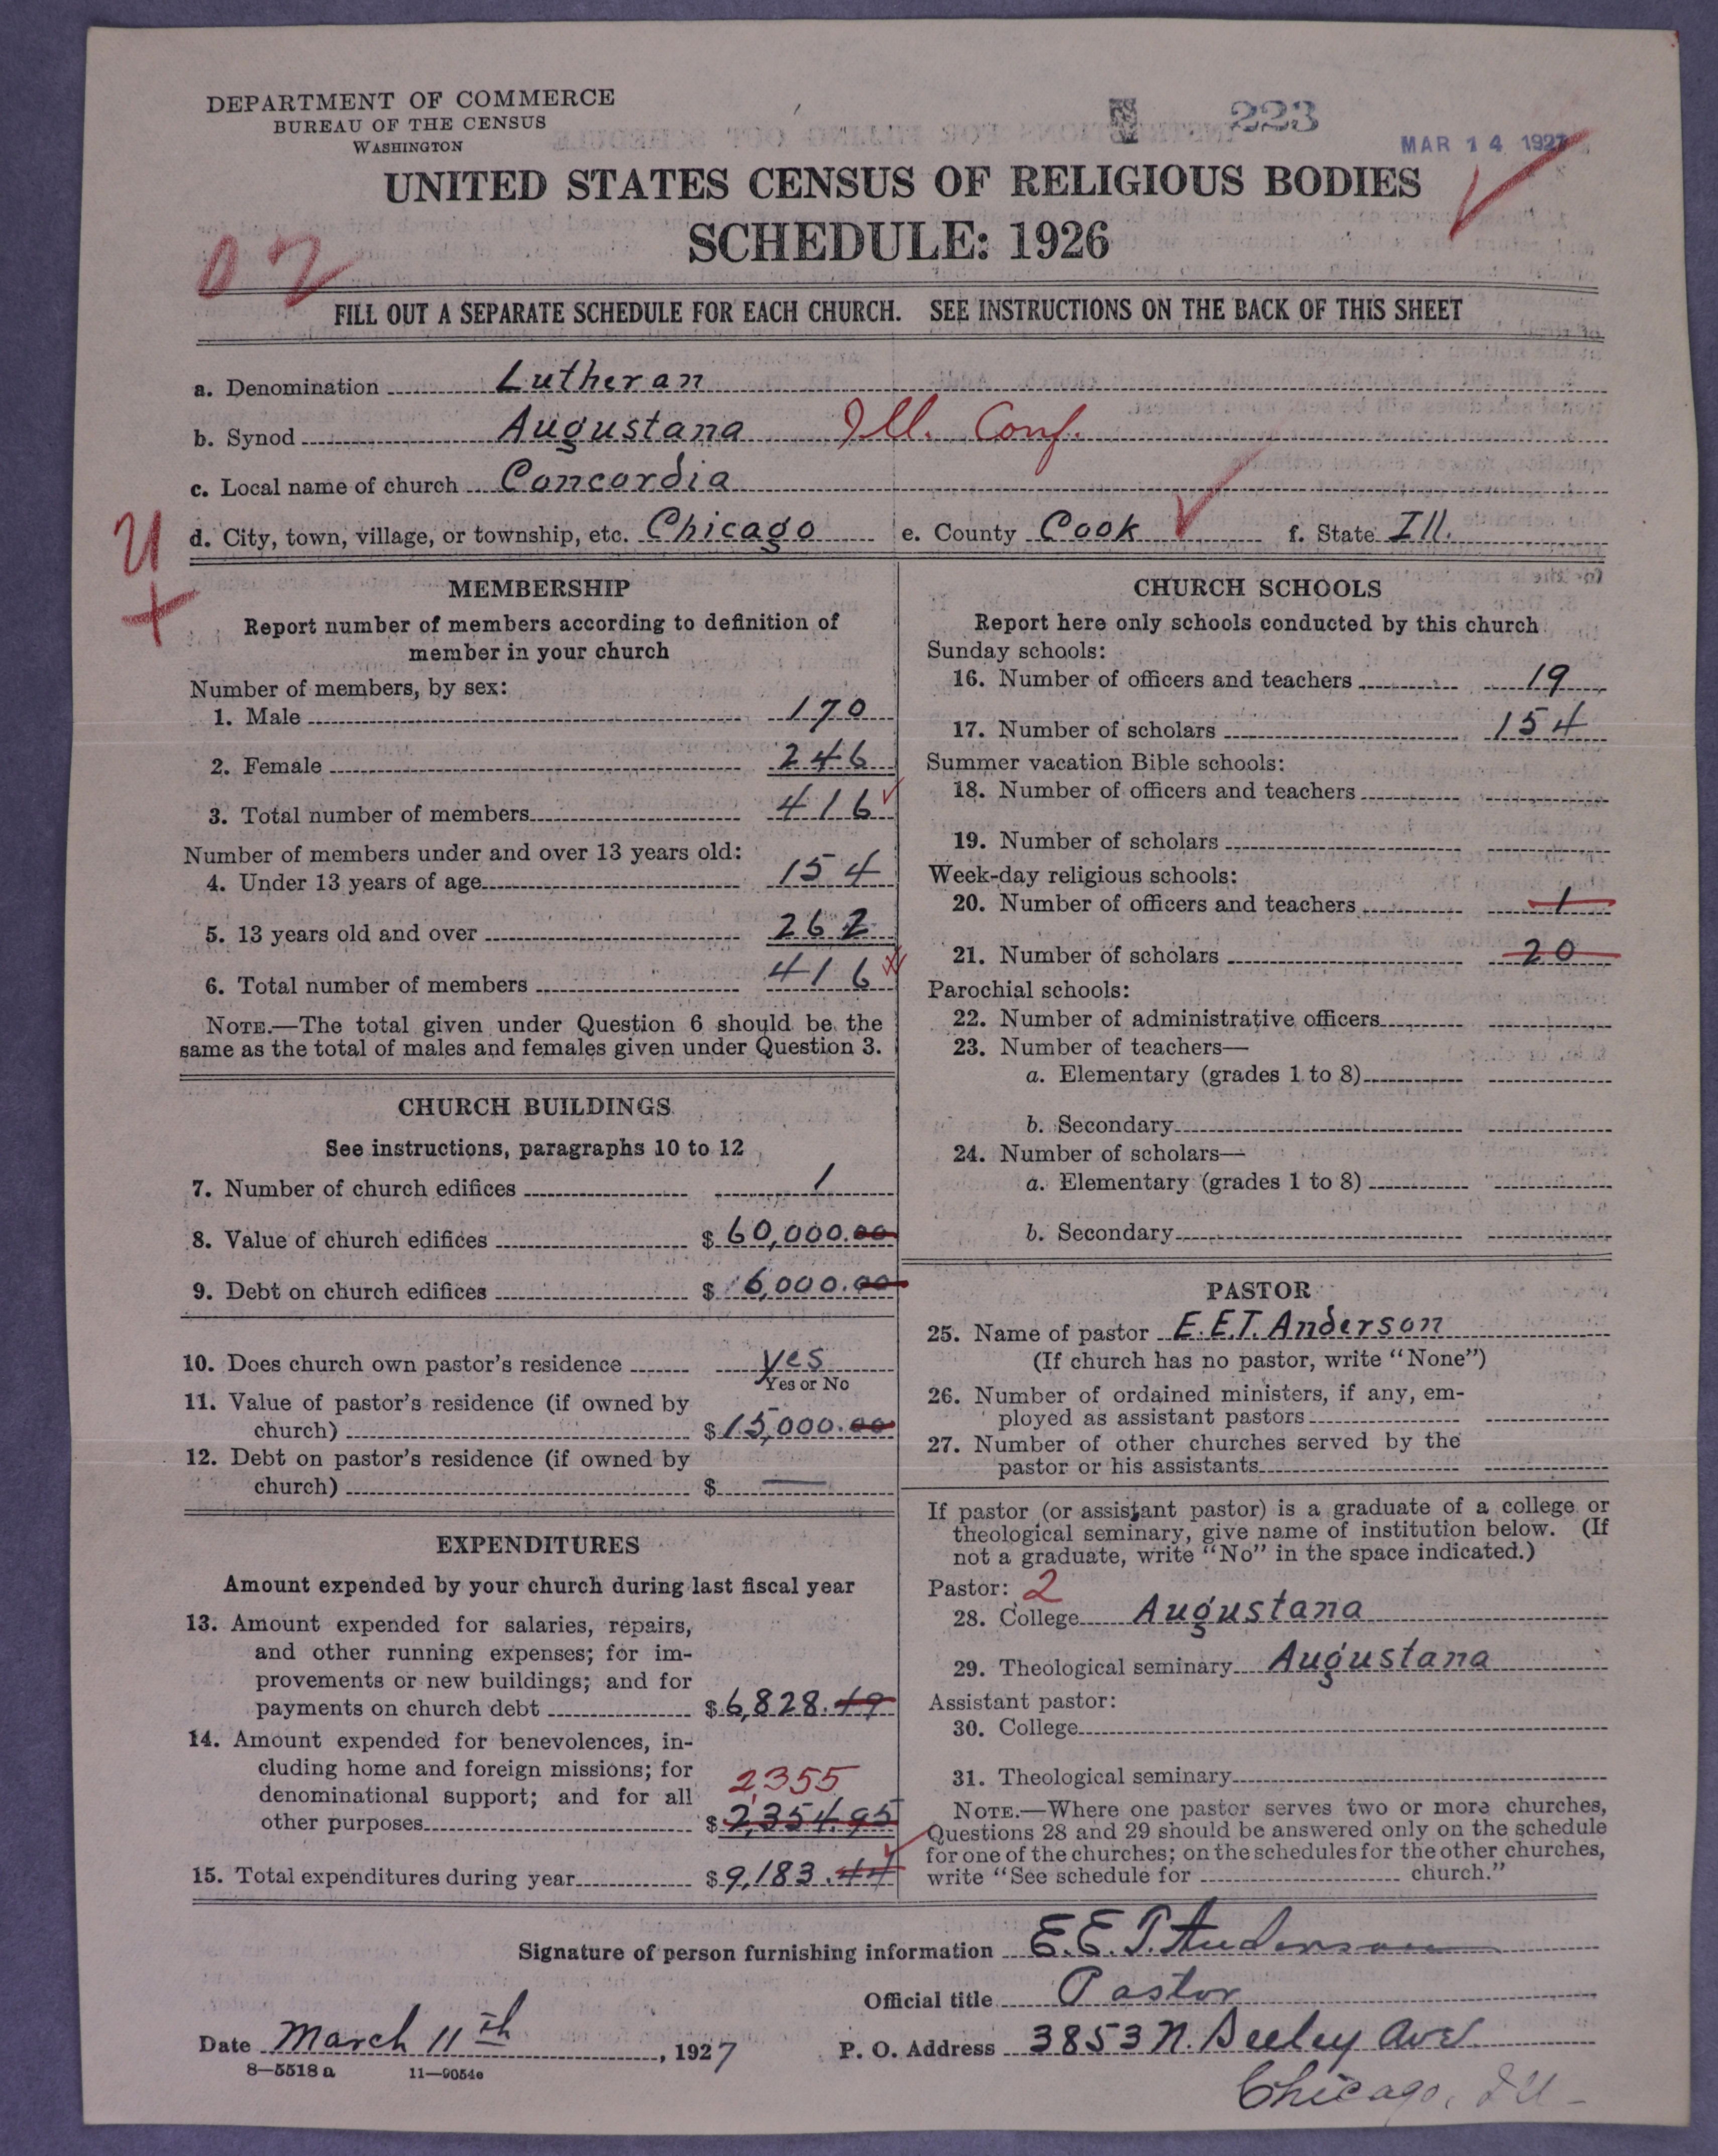 DEPARTMENT OF COMMERCE
BUREAU OF THE CENSUS
WASHINGTON
223
MAR 14 1927
UNITED STATES CENSUS OF RELIGIOUS BODIES
SCHEDULE: 1926
02
FILL OUT A SEPARATE SCHEDULE FOR EACH CHURCH. SEE INSTRUCTIONS ON THE BACK OF THIS SHEET
a. Denomination Lutheran
b. Synod Augustana Ill. Conf.
c. Local name of church Concordia
d. City, town, village, or township, etc. Chicago e. County Cook f. State Ill.
MEMBERSHIP
Report number of members according to definition of
member in your church
Number of members, by sex:
1. Male 170
2. Female 246
3. Total number of members 416
Number of members under and over 13 years old:
4. Under 13 years of age 154
5. 13 years old and over 262
6. Total number of members 416
NOTE.—The total given under Question 6 should be the
same as the total of males and females given under Question 3.
CHURCH BUILDINGS
See instructions, paragraphs 10 to 12
7. Number of church edifices 1
8. Value of church edifices $ 60,000.00
9. Debt on church edifices $ 6,000.00
10. Does church own pastor's residence yes
Yes or No
11. Value of pastor's residence (if owned by
church) $ 15,000.00
12. Debt on pastor's residence (if owned by
church) $ —
EXPENDITURES
Amount expended by your church during last fiscal year
13. Amount expended for salaries, repairs,
and other running expenses; for im-
provements or new buildings; and for
payments on church debt $ 6,828.49
14. Amount expended for benevolences, in-
cluding home and foreign missions; for
denominational support; and for all 2,355
other purposes $ 2,354.95
15. Total expenditures during year $ 9,183.44
CHURCH SCHOOLS
Report here only schools conducted by this church
Sunday schools:
16. Number of officers and teachers 19
17. Number of scholars 154
Summer vacation Bible schools:
18. Number of officers and teachers
19. Number of scholars
Week-day religious schools:
20. Number of officers and teachers 1
21. Number of scholars 20
Parochial schools:
22. Number of administrative officers
23. Number of teachers—
a. Elementary (grades 1 to 8)
b. Secondary
24. Number of scholars—
a. Elementary (grades 1 to 8)
b. Secondary
PASTOR
25. Name of pastor E.E.T. Anderson
(If church has no pastor, write "None")
26. Number of ordained ministers, if any, em-
ployed as assistant pastors
27. Number of other churches served by the
pastor or his assistants
If pastor (or assistant pastor) is a graduate of a college or
theological seminary, give name of institution below. (If
not a graduate, write "No" in the space indicated.)
Pastor: 2
28. College Augustana
29. Theological seminary Augustana
Assistant pastor:
30. College
31. Theological seminary
NOTE.—Where one pastor serves two or more churches,
Questions 28 and 29 should be answered only on the schedule
for one of the churches; on the schedules for the other churches,
write "See schedule for church."
Signature of person furnishing information E.E.T. Anderson
Official title Pastor
Date March 11th, 1927 P. O. Address 3853 N. Seeley Ave.
Chicago, Ill-
8—5518 a 11—9054e